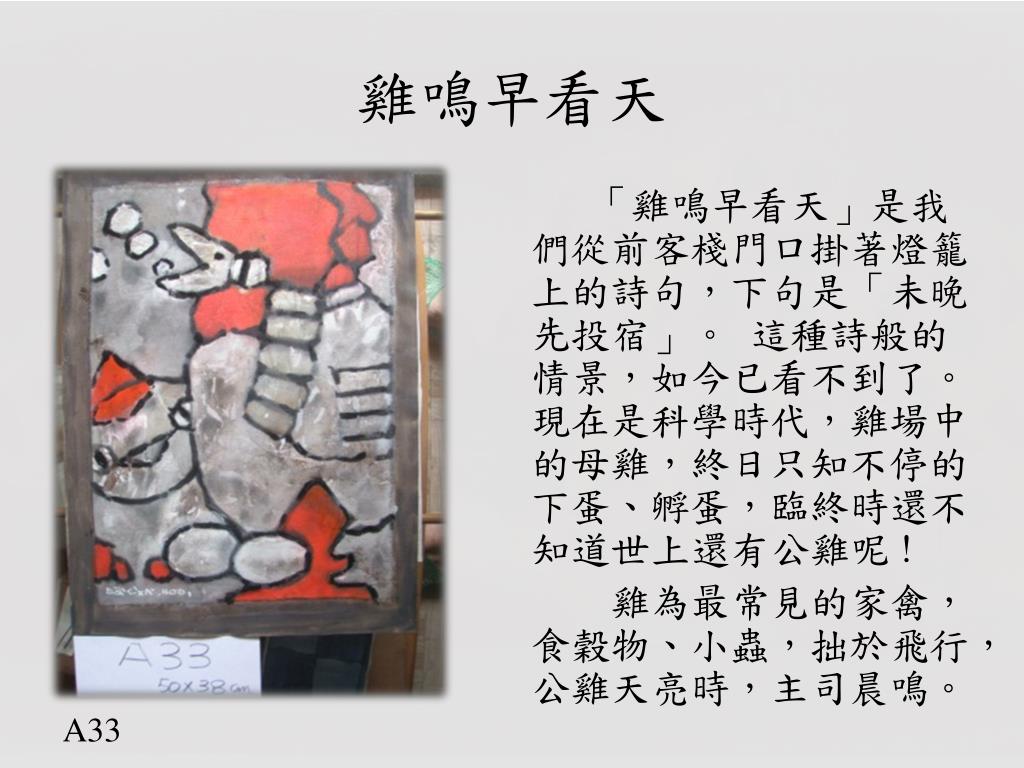 雞鳴早看天
「雞鳴早看天」是我
們從前客棧門口掛著燈籠
上的詩句，下句是「未晚
先投宿」。 這種詩般的
情景，如今已看不到了。
現在是科學時代，雞場中
的母雞，終日只知不停的
下蛋、孵蛋，臨終時還不
知道世上還有公雞呢！
雞為最常見的家禽，
食穀物、小蟲，拙於飛行，
公雞天亮時，主司晨鳴。
A33
50x38cm
A33